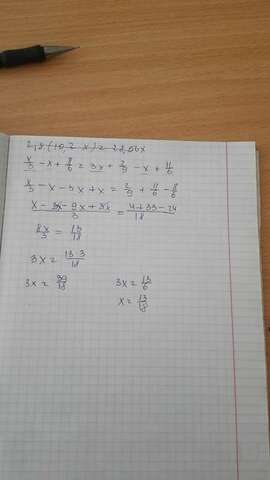 x/3 - x + 8/6 = 3x + 2/9 - x + 11/6
x/3 - x - 3x + x = 2/9 + 11/6 - 8/6
x - 3x - 9x + 3x / 3 = 4 + 33 - 24 / 18
8x/3 = 13/18
3x = 13·3/18
3x = 39/18 3x = 13/6
x = 13/18